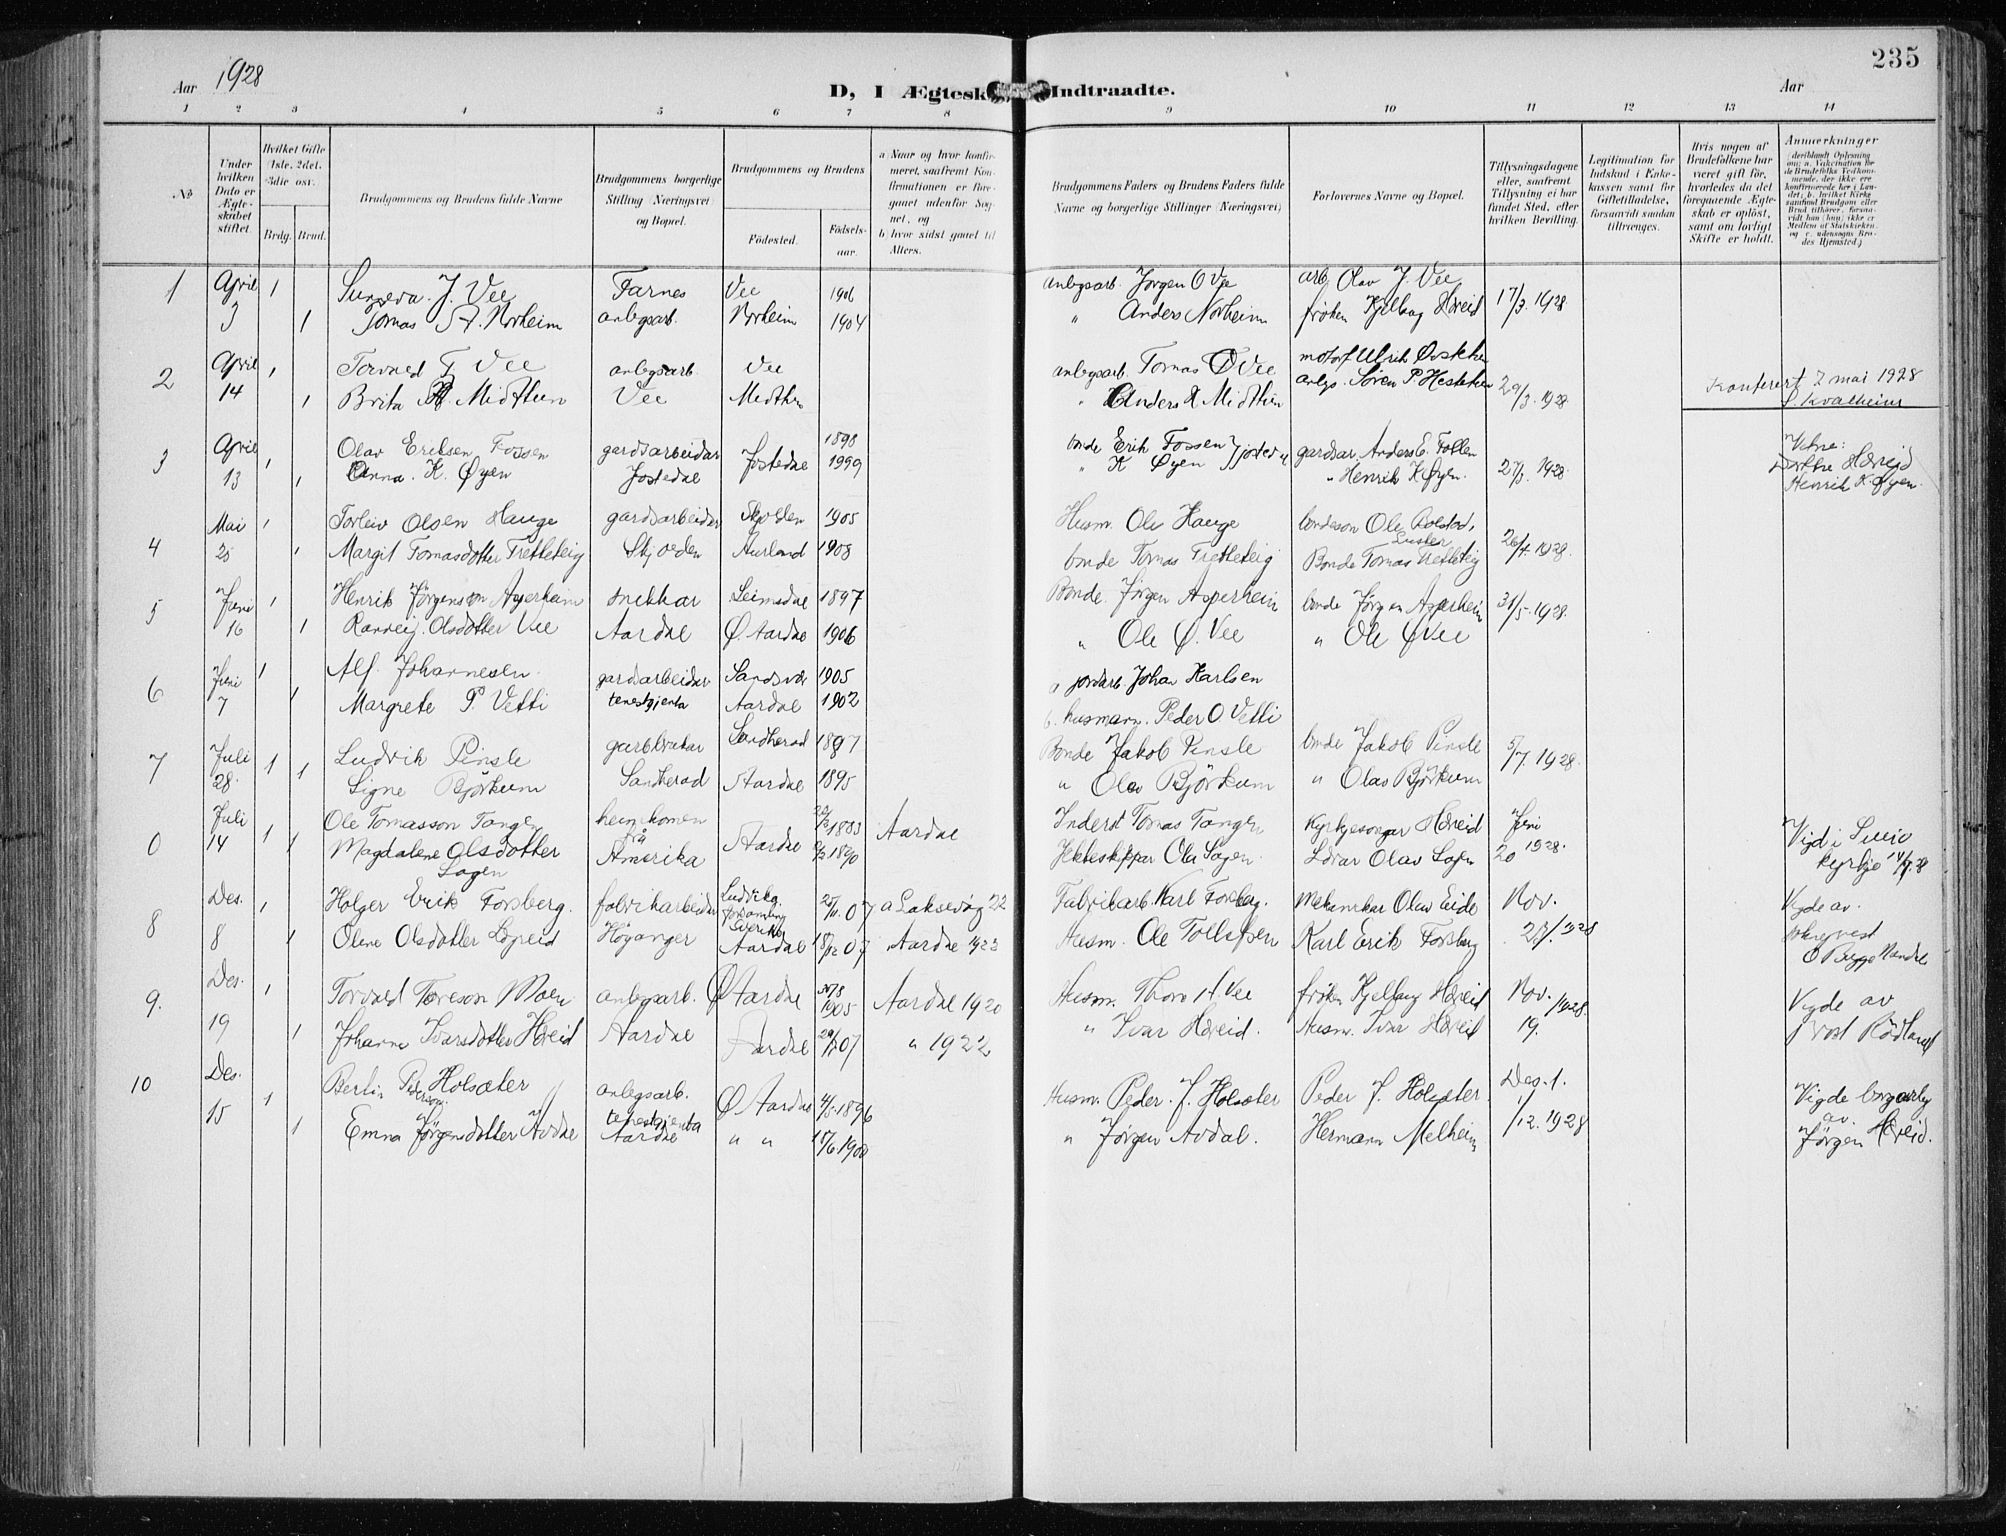 235
Aar 1928
D, I Ægtesk Indtraadte.
Aar
1 2 3 4 5 6 7 8 9 10 11 12 13 14
No
Under hvilken Dato er Ægteskabet stiftet.
Hvilket Gifte (1ste, 2det, 3die osv.
Brdg. Brud.
Brudgommens og Brudens fulde Navne
Brudgommens borgerlige Stilling (Næringsvei) og Bopæl.
Brudgommens og Brudens
Fødested.
Fødselsaar.
a Naar og hvor konfirmeret, saafremt Konfirmationen er foregaaet udenfor Sognet, og
b hvor sidst gaaet til Alters.
Brudgommens Faders og Brudens Faders fulde Navne og borgerlige Stillinger (Næringsvei)
Forlovernes Navne og Bopæl.
Tillysningsdagene eller, saafremt Tillysning ei har fundet Sted, efter hvilken Bevilling.
Legitimation for Indskud i Enkekassen samt for Giftetilladelse, forsaavidt saadan tiltrænges.
Hvis nogen af Brudefolkene har været gift før, hvorledes da det foregaaende Ægteskab er opløst, samt om lovligt Skifte er holdt.
Anmerkninger
1 April 1 Sunneva J. Vee Farnes Vee 1906 anlegsarb. Jørgen O Vee arb. Olav J. Vee 17/3 1928
3 1 Tomas A. Norheim anlegsarb. Norheim 1904 " Anders Norheim frøken Kjellaug Hæreid
2 April 1 Torvald T. Vee anlegsarb. Vee anlegsarb. Tomas Ø Vee
14 1 Brita A. Midttun Vee Midttun " Anders Midttun anlgs. Søren P. 29/3. 1928
Konferert 2 mai 1928
S. Kvalheim
3 April 1 Olav Eriksen Fossen gardsarbeidar Jostedal 1898 bonde Erik Fossen gardsar. Anders E. Vitne:
13 1 Anna K. Øyen Jostedal 1899 " K Øyen Jostedal " Henrik K Øyen. 27/3. 1928 Hæreid
Henrik K. Øyen.
4 Mai 1 Torleiv Olsen Hauge gardsarbeidar Skjolden 1905 Husm. Ole Hauge bondeson Ole Bolstad, Luster 26/4. 1928.
25 1 Margit Tomasdotter Tretteteig Skjolden Aurland 1908 bonde Tomas Tretteteig Bonde Tomas Tretteteig
5 Juni 1 Henrik Jørgenson Asperheim snikkar Seimsdal 1897 Bonde Jørgen Asperheim bonde Jørgen Asperheim 31/5. 1928.
16 1 Ranveig Olsdotter Vee Aardal Ø. Aardal 1906 " Ole Ø. Vee " Ole Ø Vee
6 Juni 1 Alf Johannesen gardsarbeidar 1905 a jordarb. Johan Karlsen
7 1 Margrete P. Vetti tenestgjenta Aardal 1902 b. husmann. Peder O. Vetti
7 Juli 1 Ludvik Pinsle gardbrukar Sandherad 1897 Bonde Jakob Pinsle bonde Jakob Pinsle 5/7. 1928.
28 1 Signe Bjørkum Sandherad Aardal 1895 " Olav Bjørkum " Olav Bjørkum
0 Juli 1 Ole Tomasson Tangen heimkomen frå 1883 Aardal Inderst Tomas Tangen Kyrkjesongar Hæreid Juni Vigd i
14 1 Magdalene Olsdotter Lægen Amerika Aardal 1890 Ola Lægen Lærar Olav Lægen 20 1928. kyrkje 14/7. 28
8 Des. 1 Holger Erik Forsberg. fabrikarbeidar Ludvika forsamling Sverike 25/11. 07 a Laksevåg 22 Fabrikarb. Karl Forsberg. Mekanikar Olav Eide Nov. Vigde av
8 1 Oline Olsdotter Løgreid Høyanger Aardal 18/12 07 Aardal 1922 Husm. Ole Karl Erik Forsberg 27. 1928
9. Des. 1 Torvald Toreson Moen anlegsarb. Ø Aardal 1905 Aardal 1920 Husm. Thore H. Vee frøken Kjellaug Hæreid Nov. 1928. Vigde av
19 1 Johanne Ivarsdotter Hæreid Aardal Aardal 07 " 1922 " Ivar Hæreid. Husm. Ivar Hæreid 19. prost Rødland
10 Des. 1 Bertin Pederson Holsæter anlegsarb. Ø Aardal 4/5 1896 Husm. Peder J. Holsæter Peder J. Holsæter Des. 1. Vigde borgarleg
15 1 Emma Jørgensdotter Avdal tenestgjenta Aardal " " 15/6 1900 " Jørgen Avdal. Hermann Melheim 1/12. 1928 av Jørgen Hæreid.